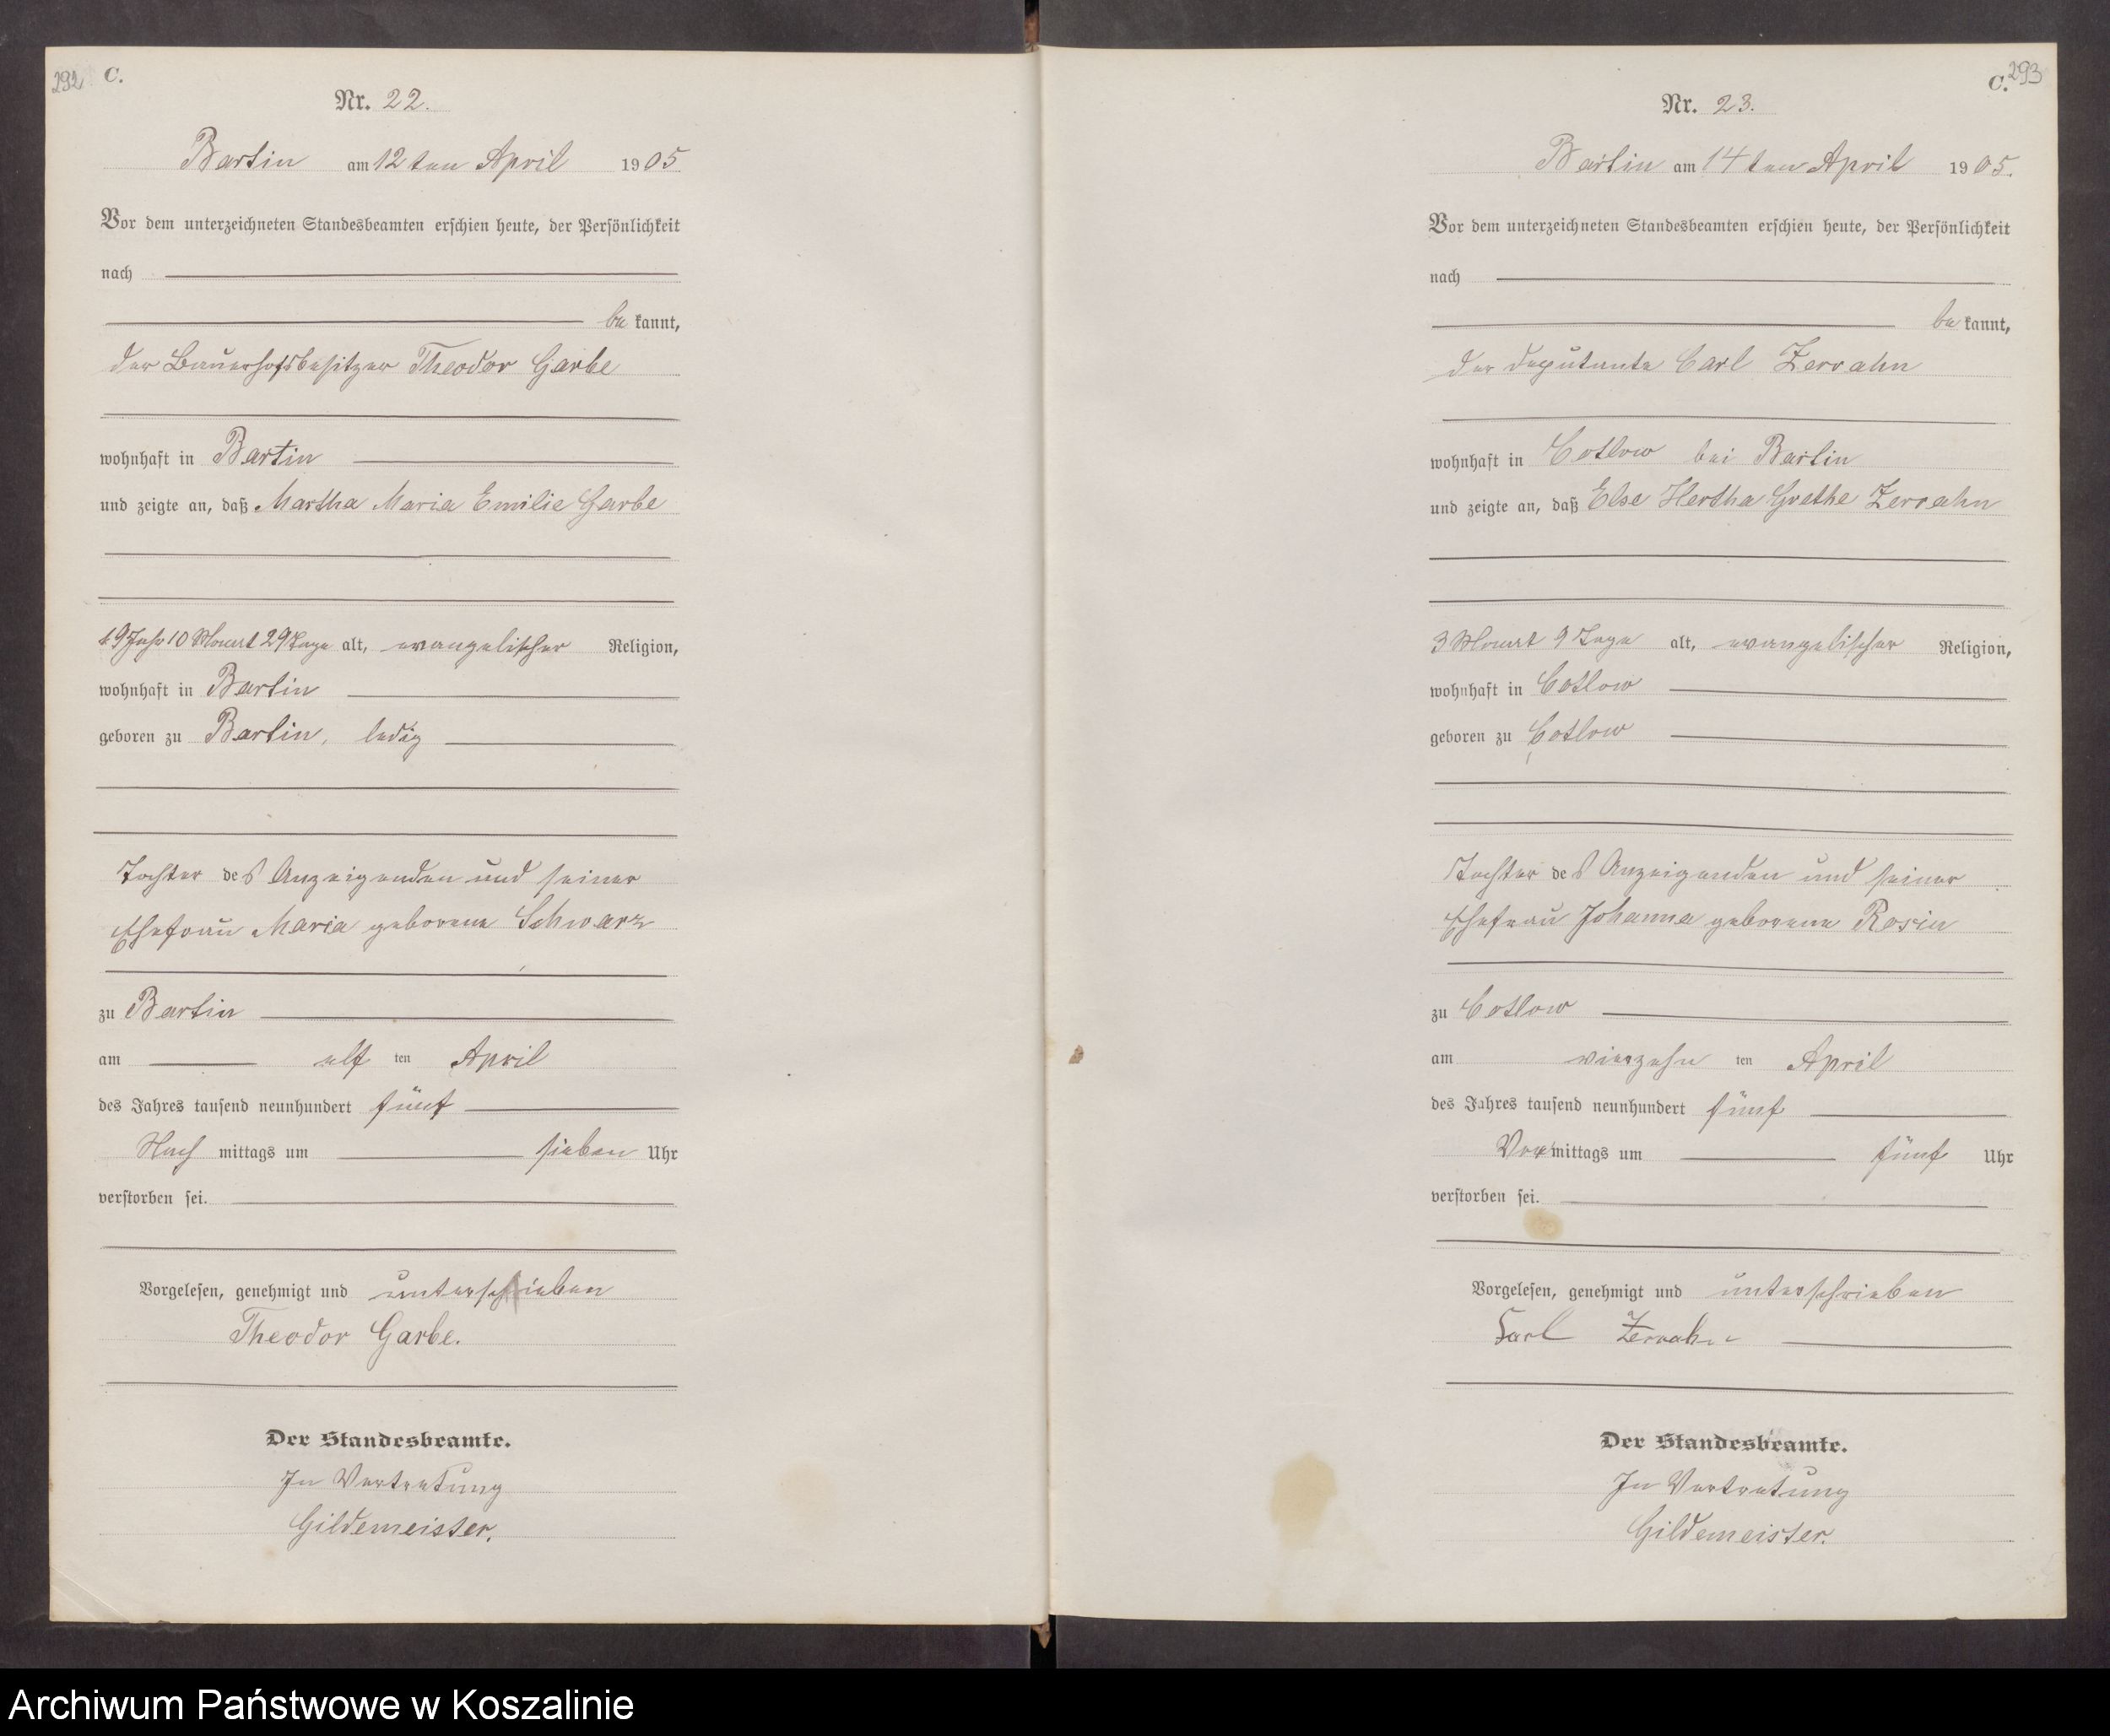 292 C.
Nr. 22.
Bartin am 12ten April 1905
Vor dem unterzeichneten Standesbeamten erschien heute, der Persönlichkeit
nach
be kannt,
der Bauerhofsbesitzer Theodor Garbe
wohnhaft in Bartin
und zeigte an, daß Martha Maria Emilie Garbe
19 Jahr 10 Monat 29 Tage alt, evangelischer Religion,
wohnhaft in Bartin
geboren zu Bartin, ledig
Tochter des Anzeigenden und seiner
Ehefrau Maria geborene Schwarz
zu Bartin
am elf ten April
des Jahres tausend neunhundert fünf
Nach mittags um sieben Uhr
verstorben sei.
Vorgelesen, genehmigt und unterschrieben
Theodor Garbe.
Der Standesbeamte.
In Vertretung
Gildemeister.
C. 293
Nr. 23.
Bartin am 14ten April 1905.
Vor dem unterzeichneten Standesbeamten erschien heute, der Persönlichkeit
nach
be kannt,
der Deputante Carl Zerrahn
wohnhaft in Cotlow bei Bartin
und zeigte an, daß Else Hertha Grethe Zerrahn
3 Monat 9 Tage alt, evangelischer Religion,
wohnhaft in Cotlow
geboren zu Cotlow
Tochter des Anzeigenden und seiner
Ehefrau Johanna geborene Rosin
zu Cotlow
am vierzehn ten April
des Jahres tausend neunhundert fünf
Vor mittags um fünf Uhr
verstorben sei.
Vorgelesen, genehmigt und unterschrieben
Carl Zerrahn
Der Standesbeamte.
In Vertretung
Gildemeister.
Archiwum Państwowe w Koszalinie